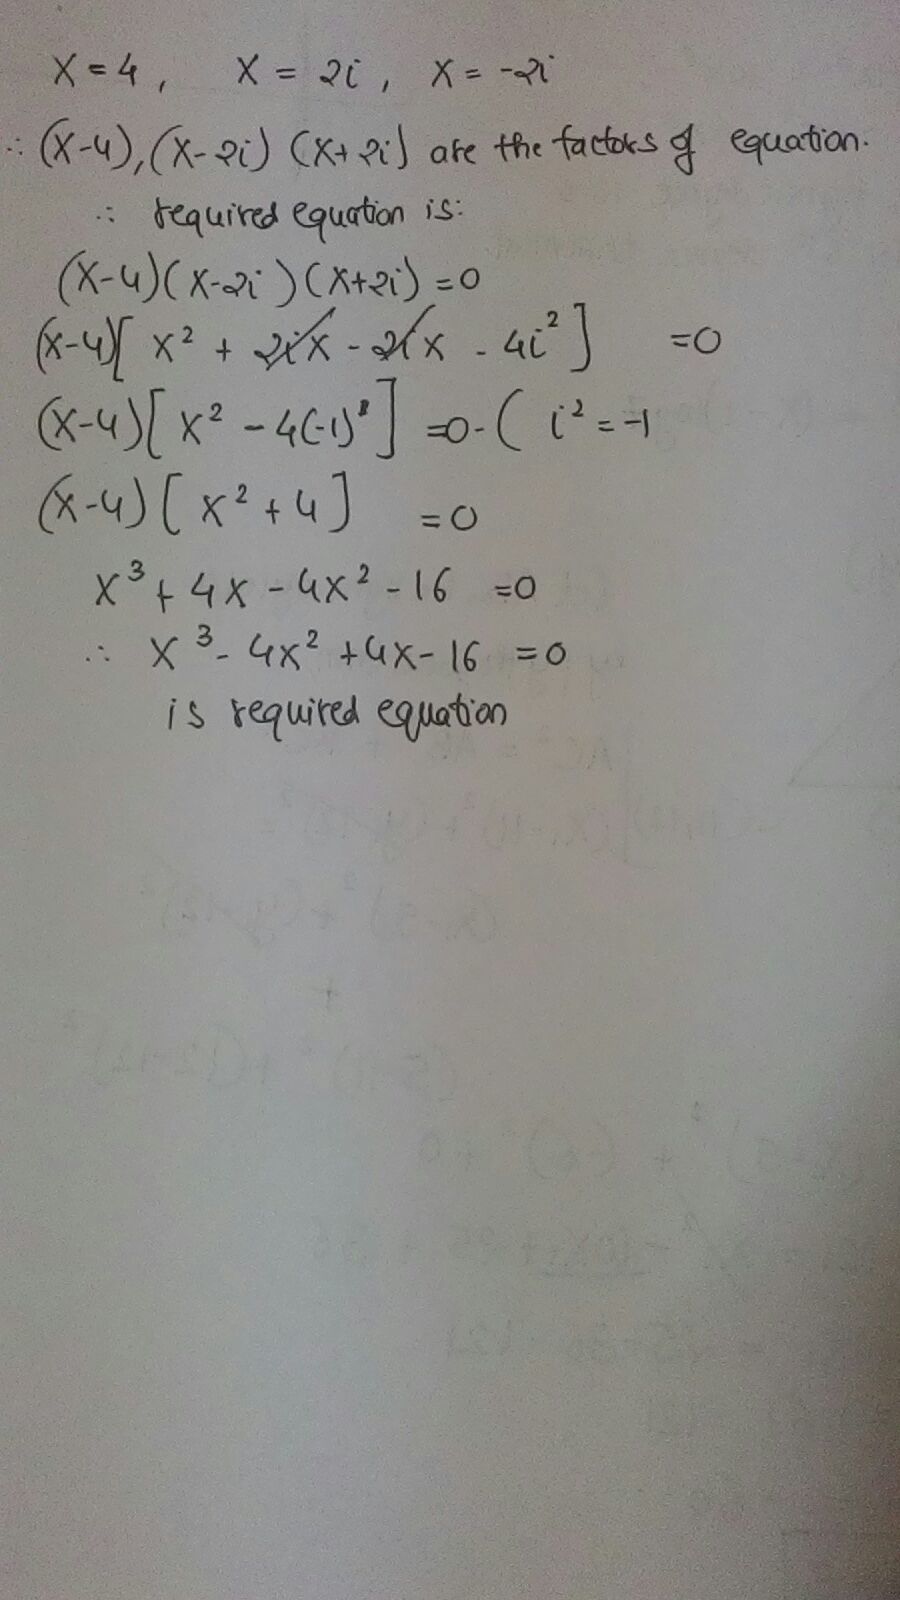 x = 4, x = 2i, x = -2i
∴ (x-4), (x-2i) (x+2i) are the factors of equation.
∴ required equation is:
(x-4)(x-2i)(x+2i) = 0
(x-4)[x² + 2ix - 2ix - 4i²] = 0
(x-4)[x² - 4(-1)] = 0 - ( i² = -1
(x-4)[x² + 4] = 0
x³ + 4x - 4x² - 16 = 0
∴ x³ - 4x² + 4x - 16 = 0
is required equation